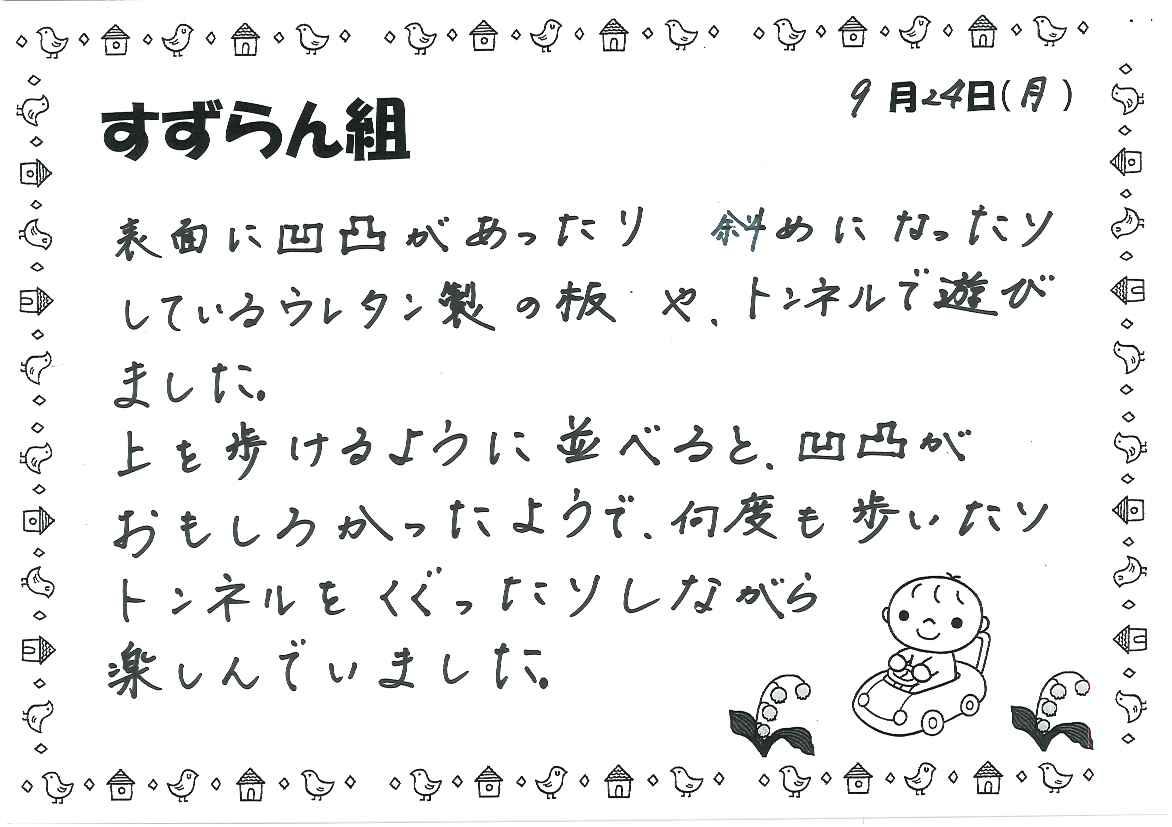 9月24日(月)
すずらん組
表面に凹凸があったり 斜めになったり
しているウレタン製の板や、トンネルで遊び
ました。
上を歩けるように並べると、凹凸が
おもしろかったようで、何度も歩いたり
トンネルをくぐったりしながら
楽しんでいました。